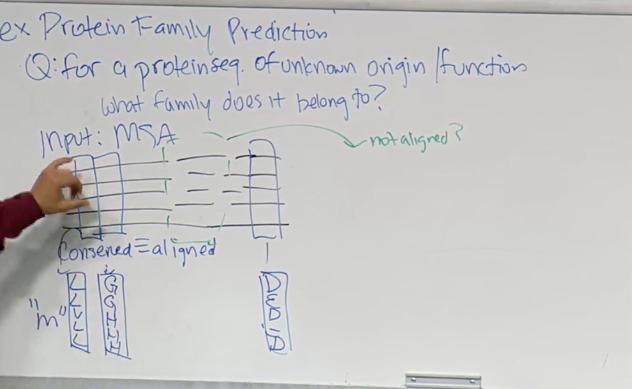 ex Protein Family Prediction
Q: for a protein seq. of unknown origin/function
what family does it belong to?
Input: MSA
not aligned?
Conserved ≡ aligned
"m"